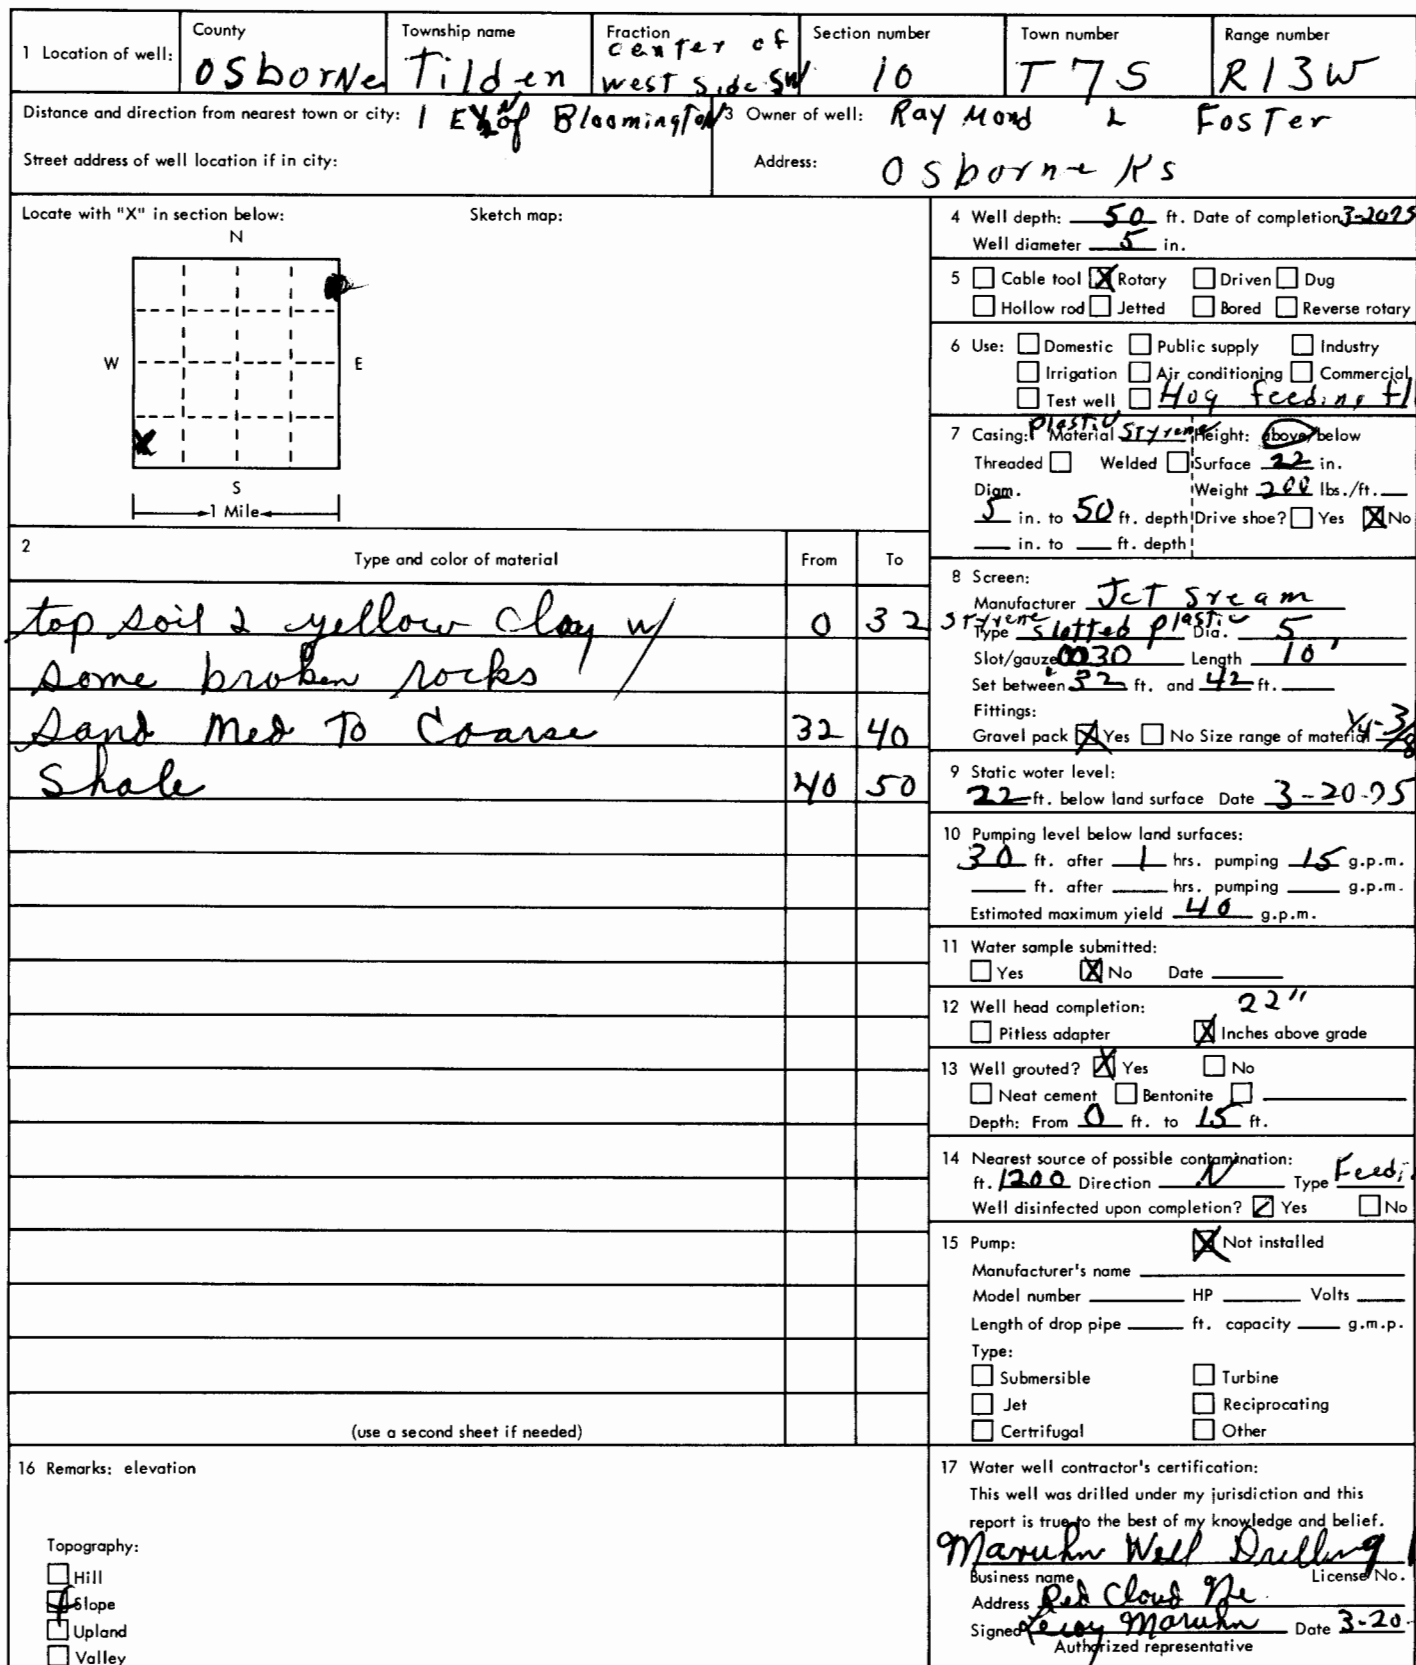 1 Location of well: County Township name Fraction Section number Town number Range number
Osborne Tilden center of west side SW 10 T 7 S R13W
Distance and direction from nearest town or city: 1 E ½ N of Bloomington 3 Owner of well: Raymond L Foster
Street address of well location if in city: Address: Osborne Ks
Locate with "X" in section below: Sketch map:
N
W E
X
S
1 Mile
2 Type and color of material From To
top soil & yellow clay w/ 0 32
some broken rocks
Sand Med To Coarse 32 40
Shale 40 50
(use a second sheet if needed)
16 Remarks: elevation
Topography:
Hill
Slope
Upland
Valley
4 Well depth: 50 ft. Date of completion 3-20 75
Well diameter 5 in.
5 Cable tool X Rotary Driven Dug
Hollow rod Jetted Bored Reverse rotary
6 Use: Domestic Public supply Industry
Irrigation Air conditioning Commercial
Test well Hog feeding fl
7 Casing: Plastic Material Styrene Height: above/below
Threaded Welded Surface 22 in.
Diam. Weight 200 lbs./ft.
5 in. to 50 ft. depth Drive shoe? Yes X No
in. to ft. depth
8 Screen:
Manufacturer Jet Sream
Styrene Type slotted plastic Dia. 5
Slot/gauze 0030 Length 10'
Set between 32 ft. and 42 ft.
Fittings:
Gravel pack X Yes No Size range of material 1/4-3/8
9 Static water level:
22 ft. below land surface Date 3-20-75
10 Pumping level below land surfaces:
30 ft. after 1 hrs. pumping 15 g.p.m.
ft. after hrs. pumping g.p.m.
Estimated maximum yield 40 g.p.m.
11 Water sample submitted:
Yes X No Date
12 Well head completion: 22"
Pitless adapter X Inches above grade
13 Well grouted? X Yes No
Neat cement Bentonite
Depth: From 0 ft. to 15 ft.
14 Nearest source of possible contamination:
ft. 1200 Direction N Type Feedi
Well disinfected upon completion? Yes No
15 Pump: X Not installed
Manufacturer's name
Model number HP Volts
Length of drop pipe ft. capacity g.m.p.
Type:
Submersible Turbine
Jet Reciprocating
Certrifugal Other
17 Water well contractor's certification:
This well was drilled under my jurisdiction and this
report is true to the best of my knowledge and belief.
Maruhn Well Drilling
Business name License No.
Address Red Cloud Ne
Signed Leroy Maruhn Date 3-20-
Authorized representative